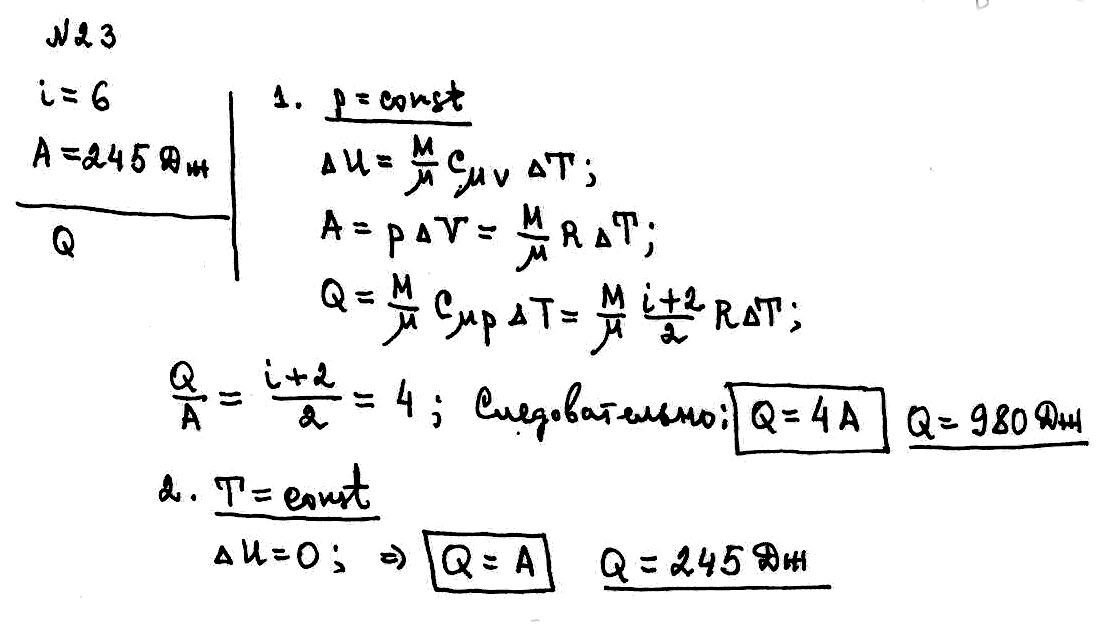 N23
i = 6
A = 245 Дж
Q
1. p = const
ΔU = M/μ Cμv ΔT;
A = pΔV = M/μ RΔT;
Q = M/μ Cμp ΔT = M/μ (i+2)/2 RΔT;
Q/A = (i+2)/2 = 4; Следовательно: Q = 4A Q = 980 Дж
2. T = const
ΔU = 0; ⇒ Q = A Q = 245 Дж